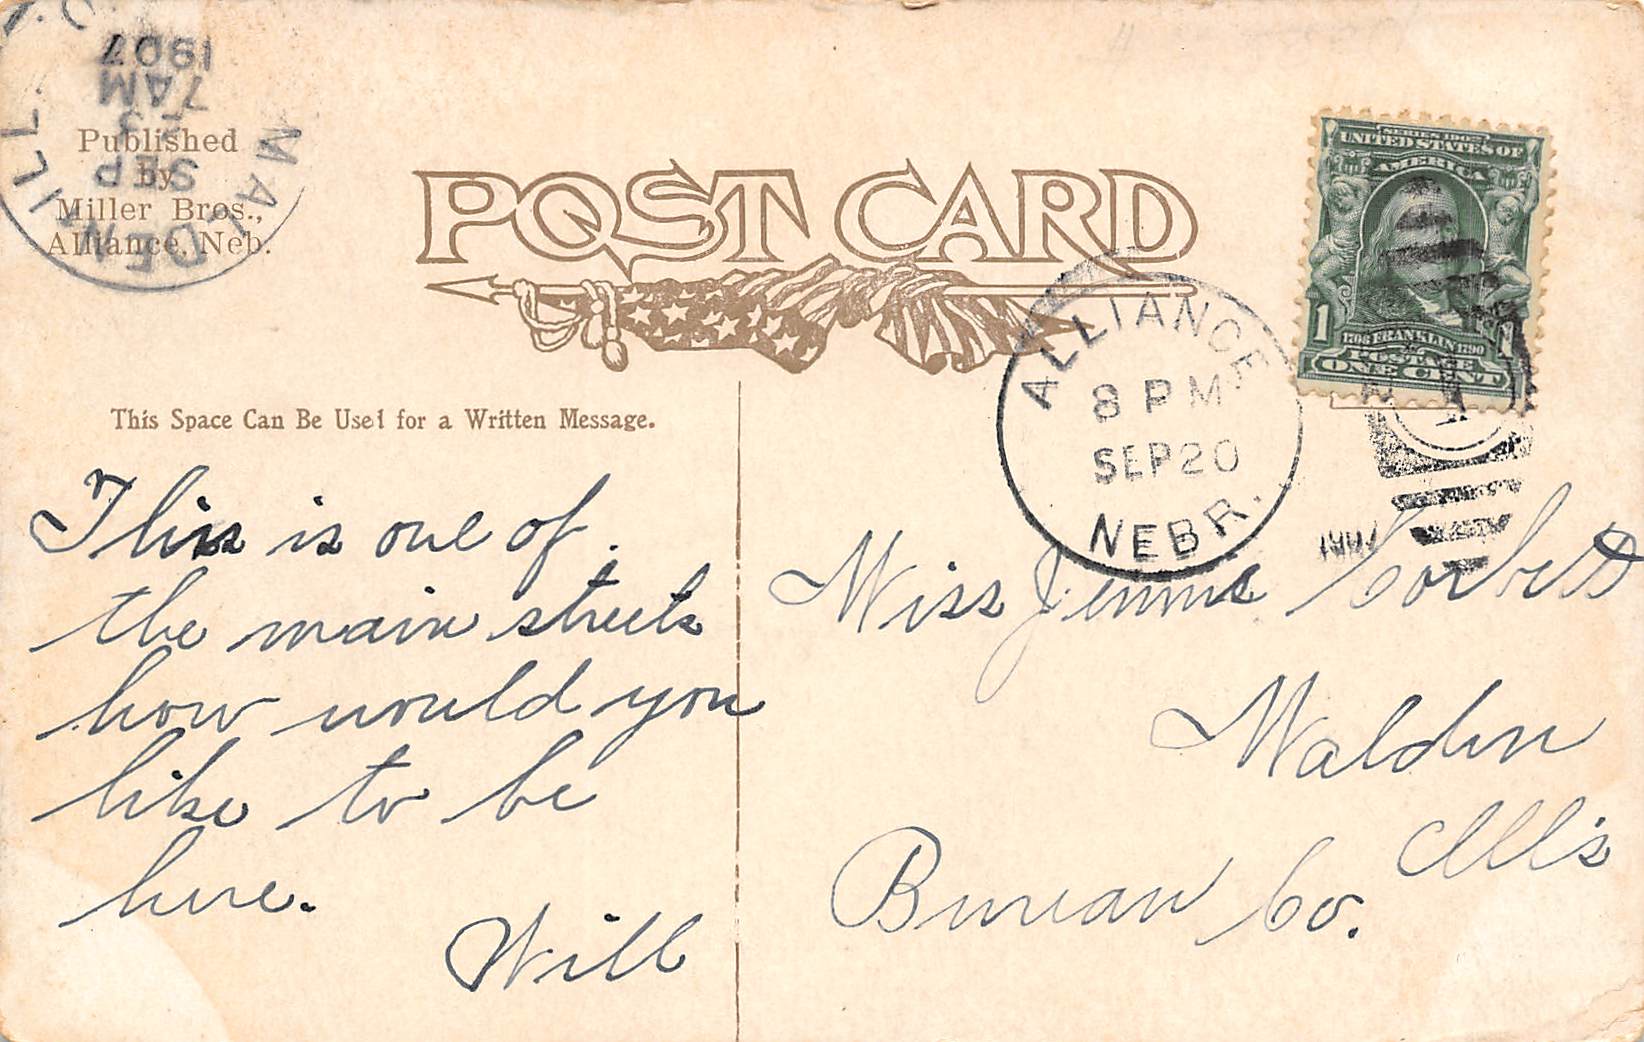 MALDEN ILL.
SEP
7 AM
1907
Published
by
Miller Bros.,
Alliance, Neb.
POST CARD
SERIES 1902
UNITED STATES OF
AMERICA
1 1
1706 FRANKLIN 1790
POSTAGE
ONE CENT
ALLIANCE
8 PM
SEP 20
NEBR.
1907
This Space Can Be Used for a Written Message.
This is one of
the main streets
how would you
like to be
here.
Will
Miss Jennie Corbett
Malden
Ills
Bureau Co.